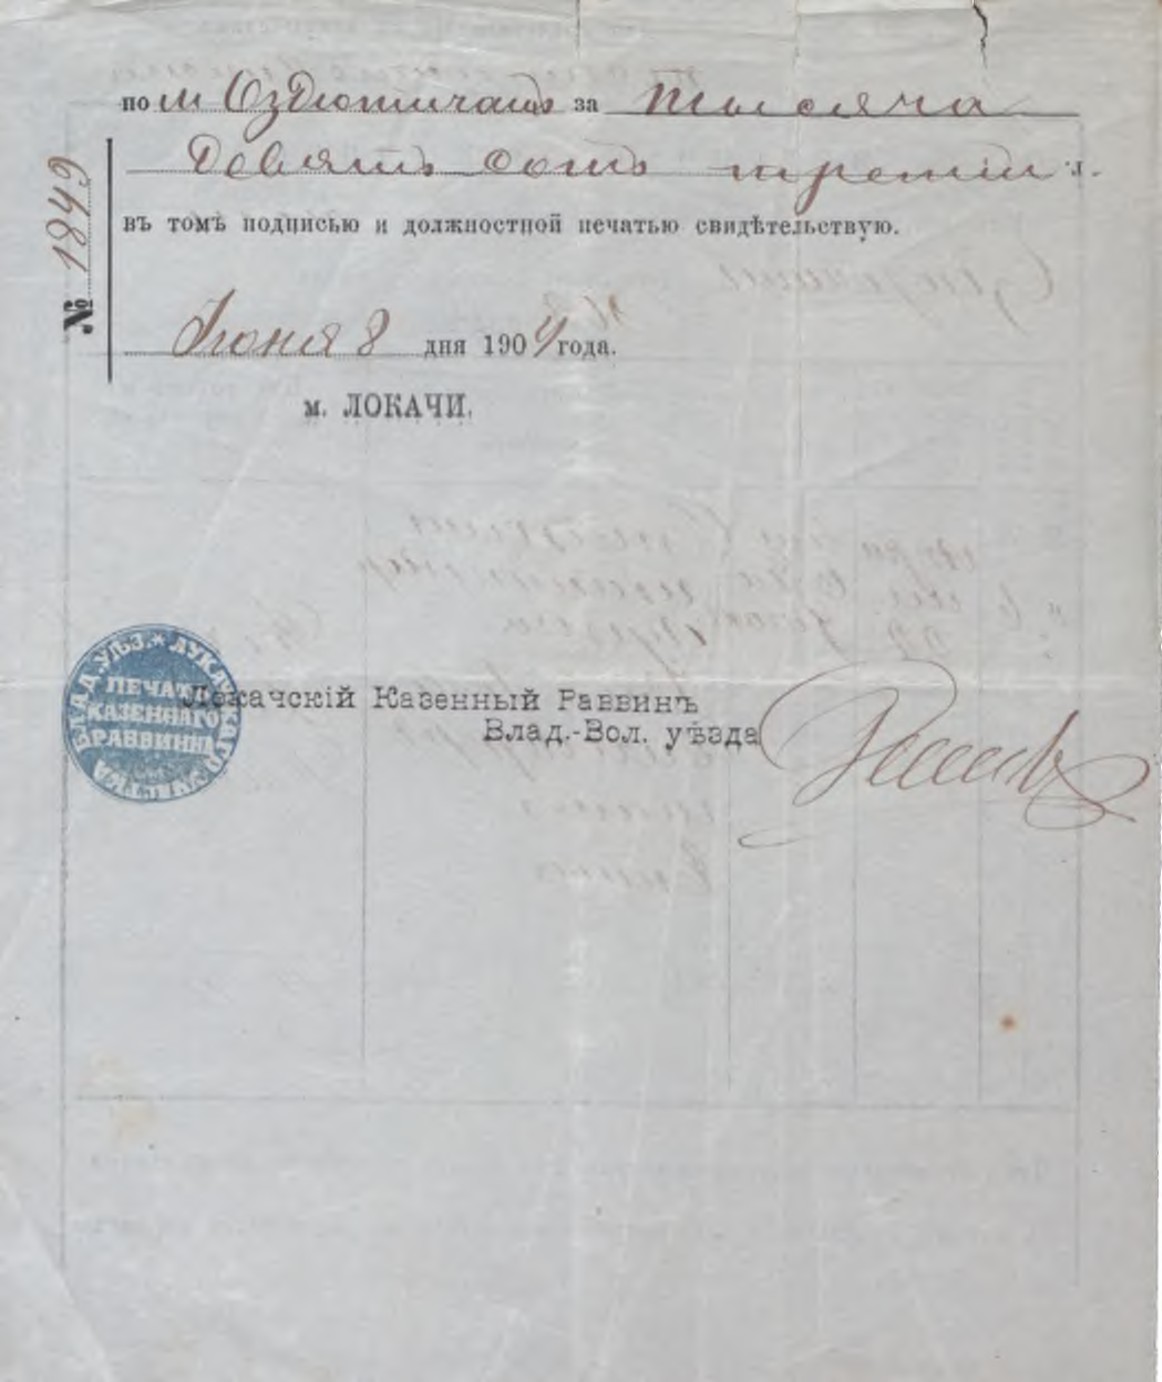 по м Оздютичамъ за тысяча
Девять сотъ третій г.
въ томъ подписью и должностной печатью свидѣтельствую.
№ 1849
Іюня 8 дня 1904 года.
м. ЛОКАЧИ.
ВЛАД. УѢЗ. * ЛУКАЧСКАГО
ПЕЧАТЬ
КАЗЕННАГО
РАВВИНА
Локачскій Казенный Раввинъ
Влад.-Вол. уѣзда